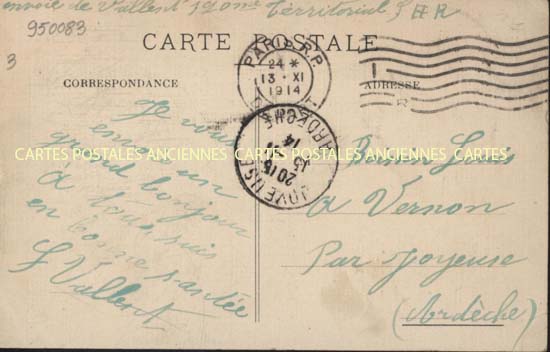 envoie de Vallent 190me Territorial S H R
950083
3
CARTE POSTALE
PARIS R.P.
24 *
13 - XI
1914
CORRESPONDANCE
ADRESSE
Je vous
envoie un
grand bonjour
a tous suis
en bonne santée
S Vallent
CARTES POSTALES ANCIENNES CARTES POSTALES ANCIENNES CARTES POSTALES ANCIENNES
JOYEUSE
ARDECHE
20 15
14
Louis
A Vernon
Par Joyeuse
(Ardèche)